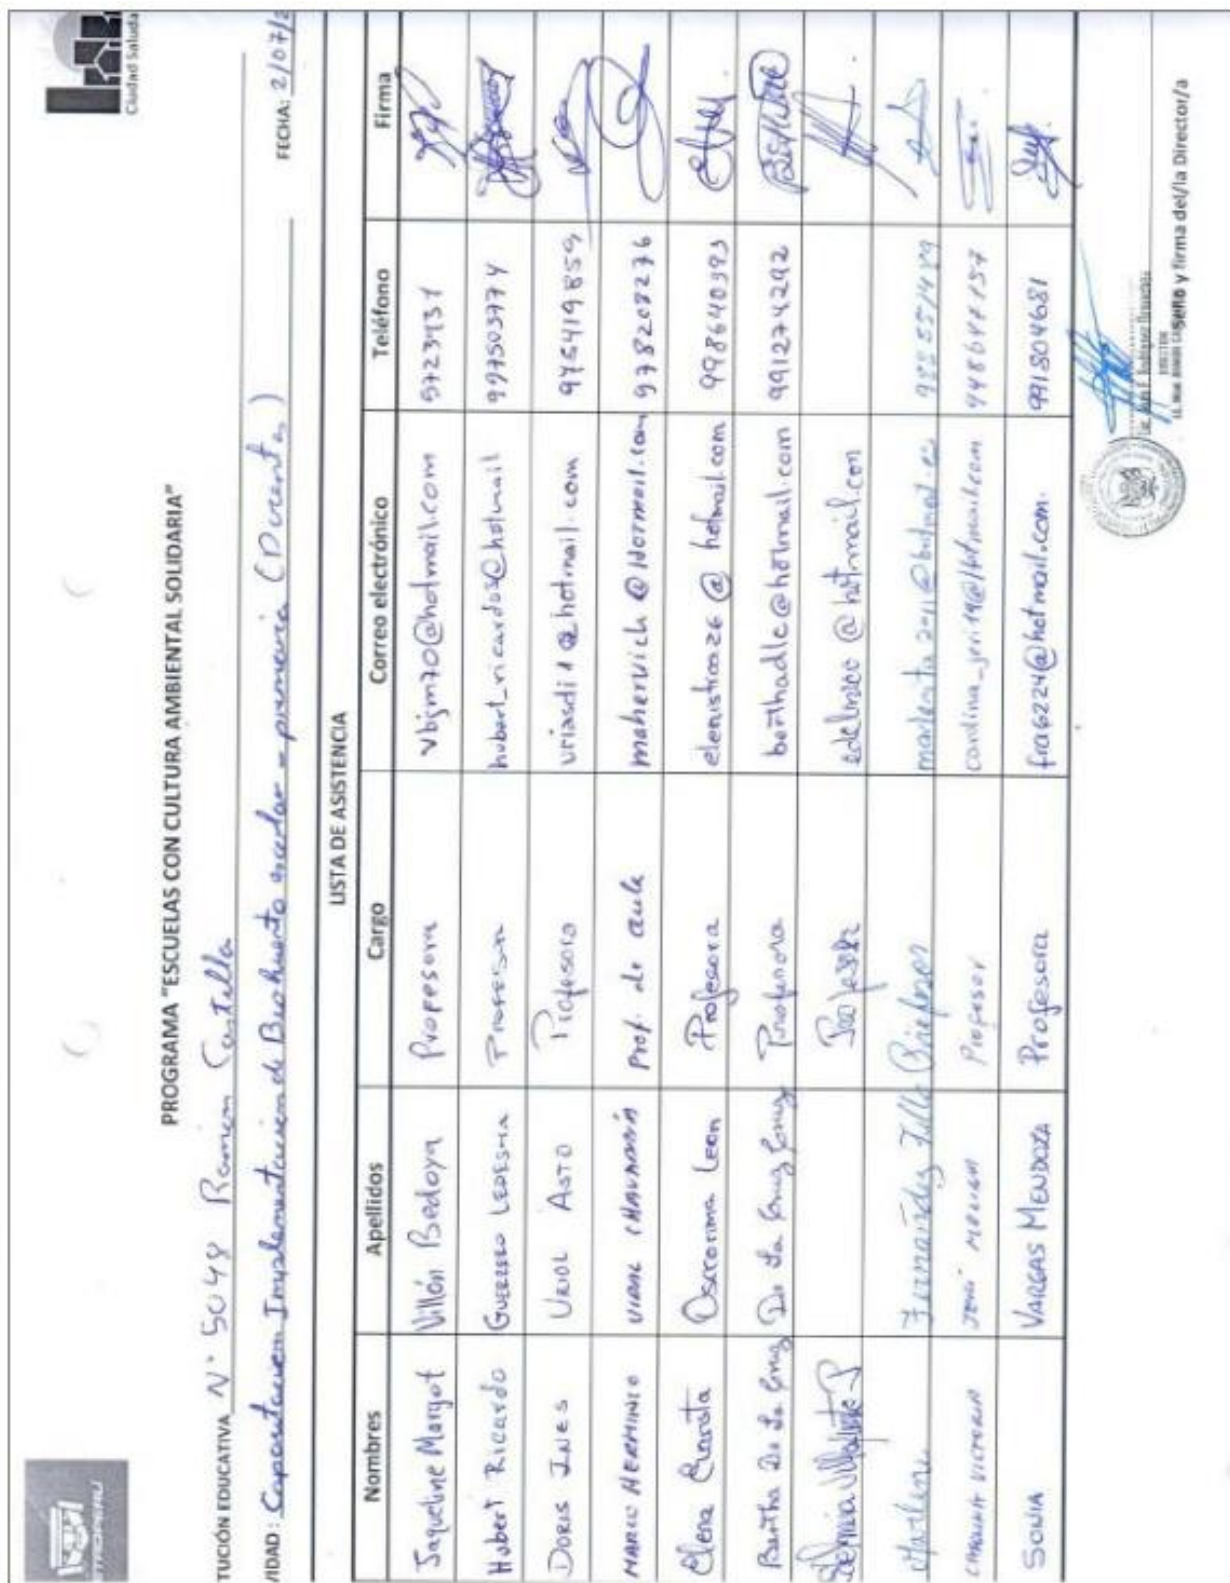 Ciudad Saluda
PROGRAMA "ESCUELAS CON CULTURA AMBIENTAL SOLIDARIA"
TUCIÓN EDUCATIVA N° 5048 Ramón Castilla
VIDAD: Capacitacion Implementacion de Biohuerto escolar - primaria (Docentes) FECHA: 2/07/2
LISTA DE ASISTENCIA
Nombres Apellidos Cargo Correo electrónico Teléfono Firma
Jaqueline Margot Villón Bedoya Profesora vbjm70@hotmail.com
Hubert Ricardo GUERRERO LEDESMA Profesor hubert_ricardo8@hotmail 997503774
DORIS INES URIOL ASTO Profesora uriasdi1@hotmail.com 975419859
MARIO HERMINIO VIDAL Prof. de aula mahervich@Hotmail.com 978208276
Elena Oscorima Leon Profesora elenistica26@hotmail.com 998640393
Bertha De La Cruz De La Cruz Profesora berthadlc@hotmail.com 991274292
@hotmail.com
Fernández
Profesor carolina_jeri19@hotmail.com
SONIA VARGAS MENDOZA Profesora fra6224@hotmail.com. 991804681
DIRECTOR
Sello y firma del/la Director/a